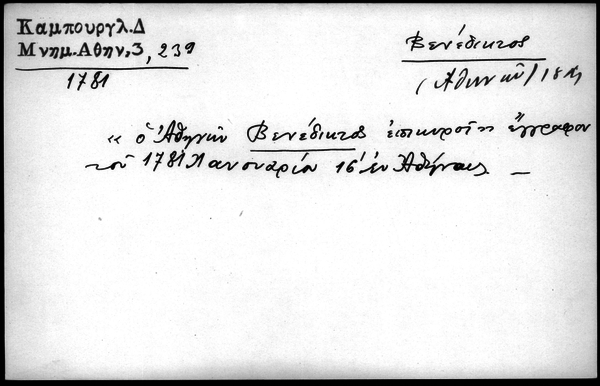 Καμπουργλ.Δ
Μνημ.Αθην.3, 239
1781
Βενέδικτος
(Ἀθηνῶν)
« ὁ Ἀθηνῶν Βενέδικτος ἐπικυροῖ ἔγγραφον
τοῦ 1781 Ἰανουαρίου 16 ἐν Ἀθήναις –